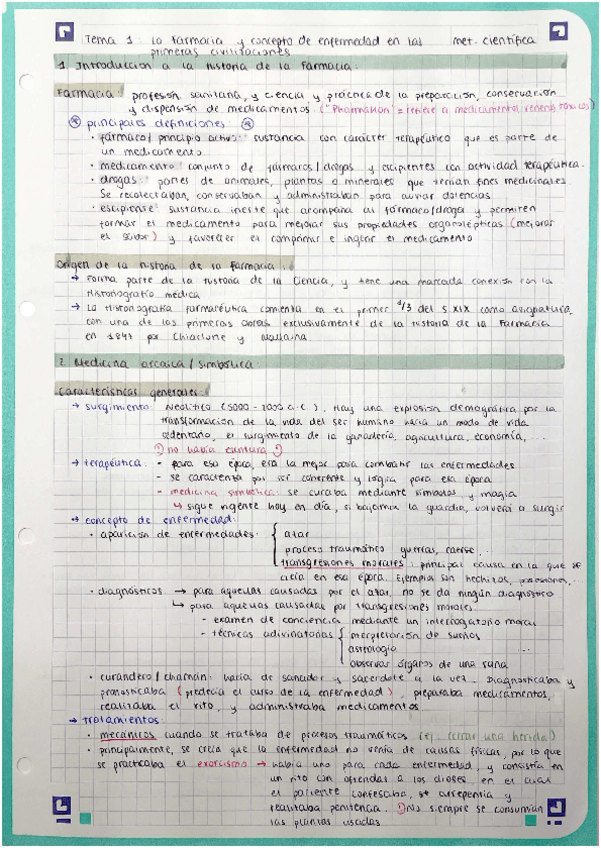 Tema 1: La farmacia y concepto de enfermedad en las primeras civilizaciones
met. científica
1. Introducción a la historia de la Farmacia.
Farmacia: profesión sanitaria, y ciencia y práctica de la preparación, conservación
y dispensión de medicamentos. ("Pharmakon" = refiere a medicamentos, venenos
principales definiciones:
· fármaco / principio activo: sustancia con carácter terapéutico que es parte de
un medicamento.
· medicamento: conjunto de fármacos / drogas y escipientes con actividad terapéutica.
· drogas: partes de animales, plantas o minerales que tenían fines medicinales.
Se recolectaban, conservaban y administraban para aliviar dolencias.
· escipiense: sustancia inerte que acompaña al fármaco/droga y permiten
formar el medicamento para mejorar sus propiedades organolépticas (mejorar
el sabor) y favorecer el comprimir e ingerir el medicamento
Origen de la historia de la Farmacia:
→ Forma parte de la historia de la Ciencia, y tiene una marcada conexión con la
Historiografía médica
→ La Historiografía farmacéutica comienza en el primer 1/3 del S.XIX como asignatura,
con una de las primeras obras exclusivamente de la historia de la Farmacia
en 1847 por Chiarlone y Mallaina.
2. Medicina arcaica / simbólica.
Características generales:
→ surgimiento: Neolítico (5000 - 2000 a.C.). Hay una explosión demográfica por la
transformación de la vida del ser humano hacia un modo de vida
sedentario, el surgimiento de la ganadería, agricultura, economía, ...
no había escritura
→ terapéutica: - para esa época, era la mejor para combatir las enfermedades
- se caracteriza por ser coherente y lógica para esa época
- medicina simbólica: se curaba mediante símbolos y magia
↳ sigue vigente hoy en día, si bajamos la guardia, volverá a surgir
→ concepto de enfermedad:
· aparición de enfermedades: azar
proceso traumático: guerras, caerse, ...
transgresiones morales: principal causa en la que se
creía en esa época. Ejemplia son hechizos, posesiones, ...
· diagnósticos: → para aquellas causadas por el azar, no se da ningún diagnóstico
↳ para aquellas causadas por transgresiones morales:
- examen de conciencia mediante un interrogatorio moral
- técnicas adivinatorias interpretación de sueños
astrología ...
observar órganos de una rana
· curandero / chamán: hacía de sanador y sacerdote a la vez. Diagnosticaba y
pronosticaba (predecía el curso de la enfermedad), preparaba medicamentos,
realizaba el rito, y administraba medicamentos.
→ Tratamientos:
· mecánicos cuando se trataba de procesos traumáticos (ej. cerrar una herida)
· principalmente, se creía que la enfermedad no venía de causas físicas, por lo que
se practicaba el exorcismo → había uno para cada enfermedad, y consistía en
un rito con ofrendas a los dioses, en el cual
el paciente confesaba, se arrepentía y
realizaba penitencia. No siempre se consumían
las plantas usadas